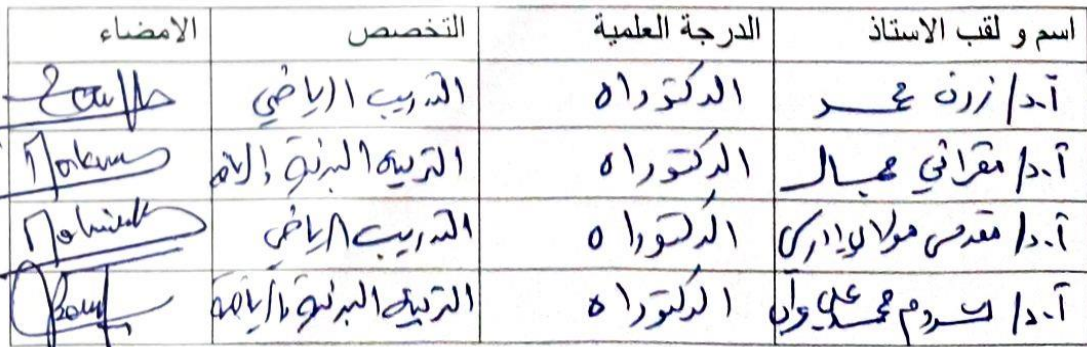 اسم و لقب الاستاذ الدرجة العلمية التخصص الامضاء
أ.د/ زرف محمد الدكتوراه التدريب الرياضي
أ.د/ مقراني جمال الدكتوراه التربية البدنية
أ.د/ مقدس مولاي ادريس الدكتوراه التدريب الرياضي
أ.د/ محمد الدكتوراه التربية البدنية